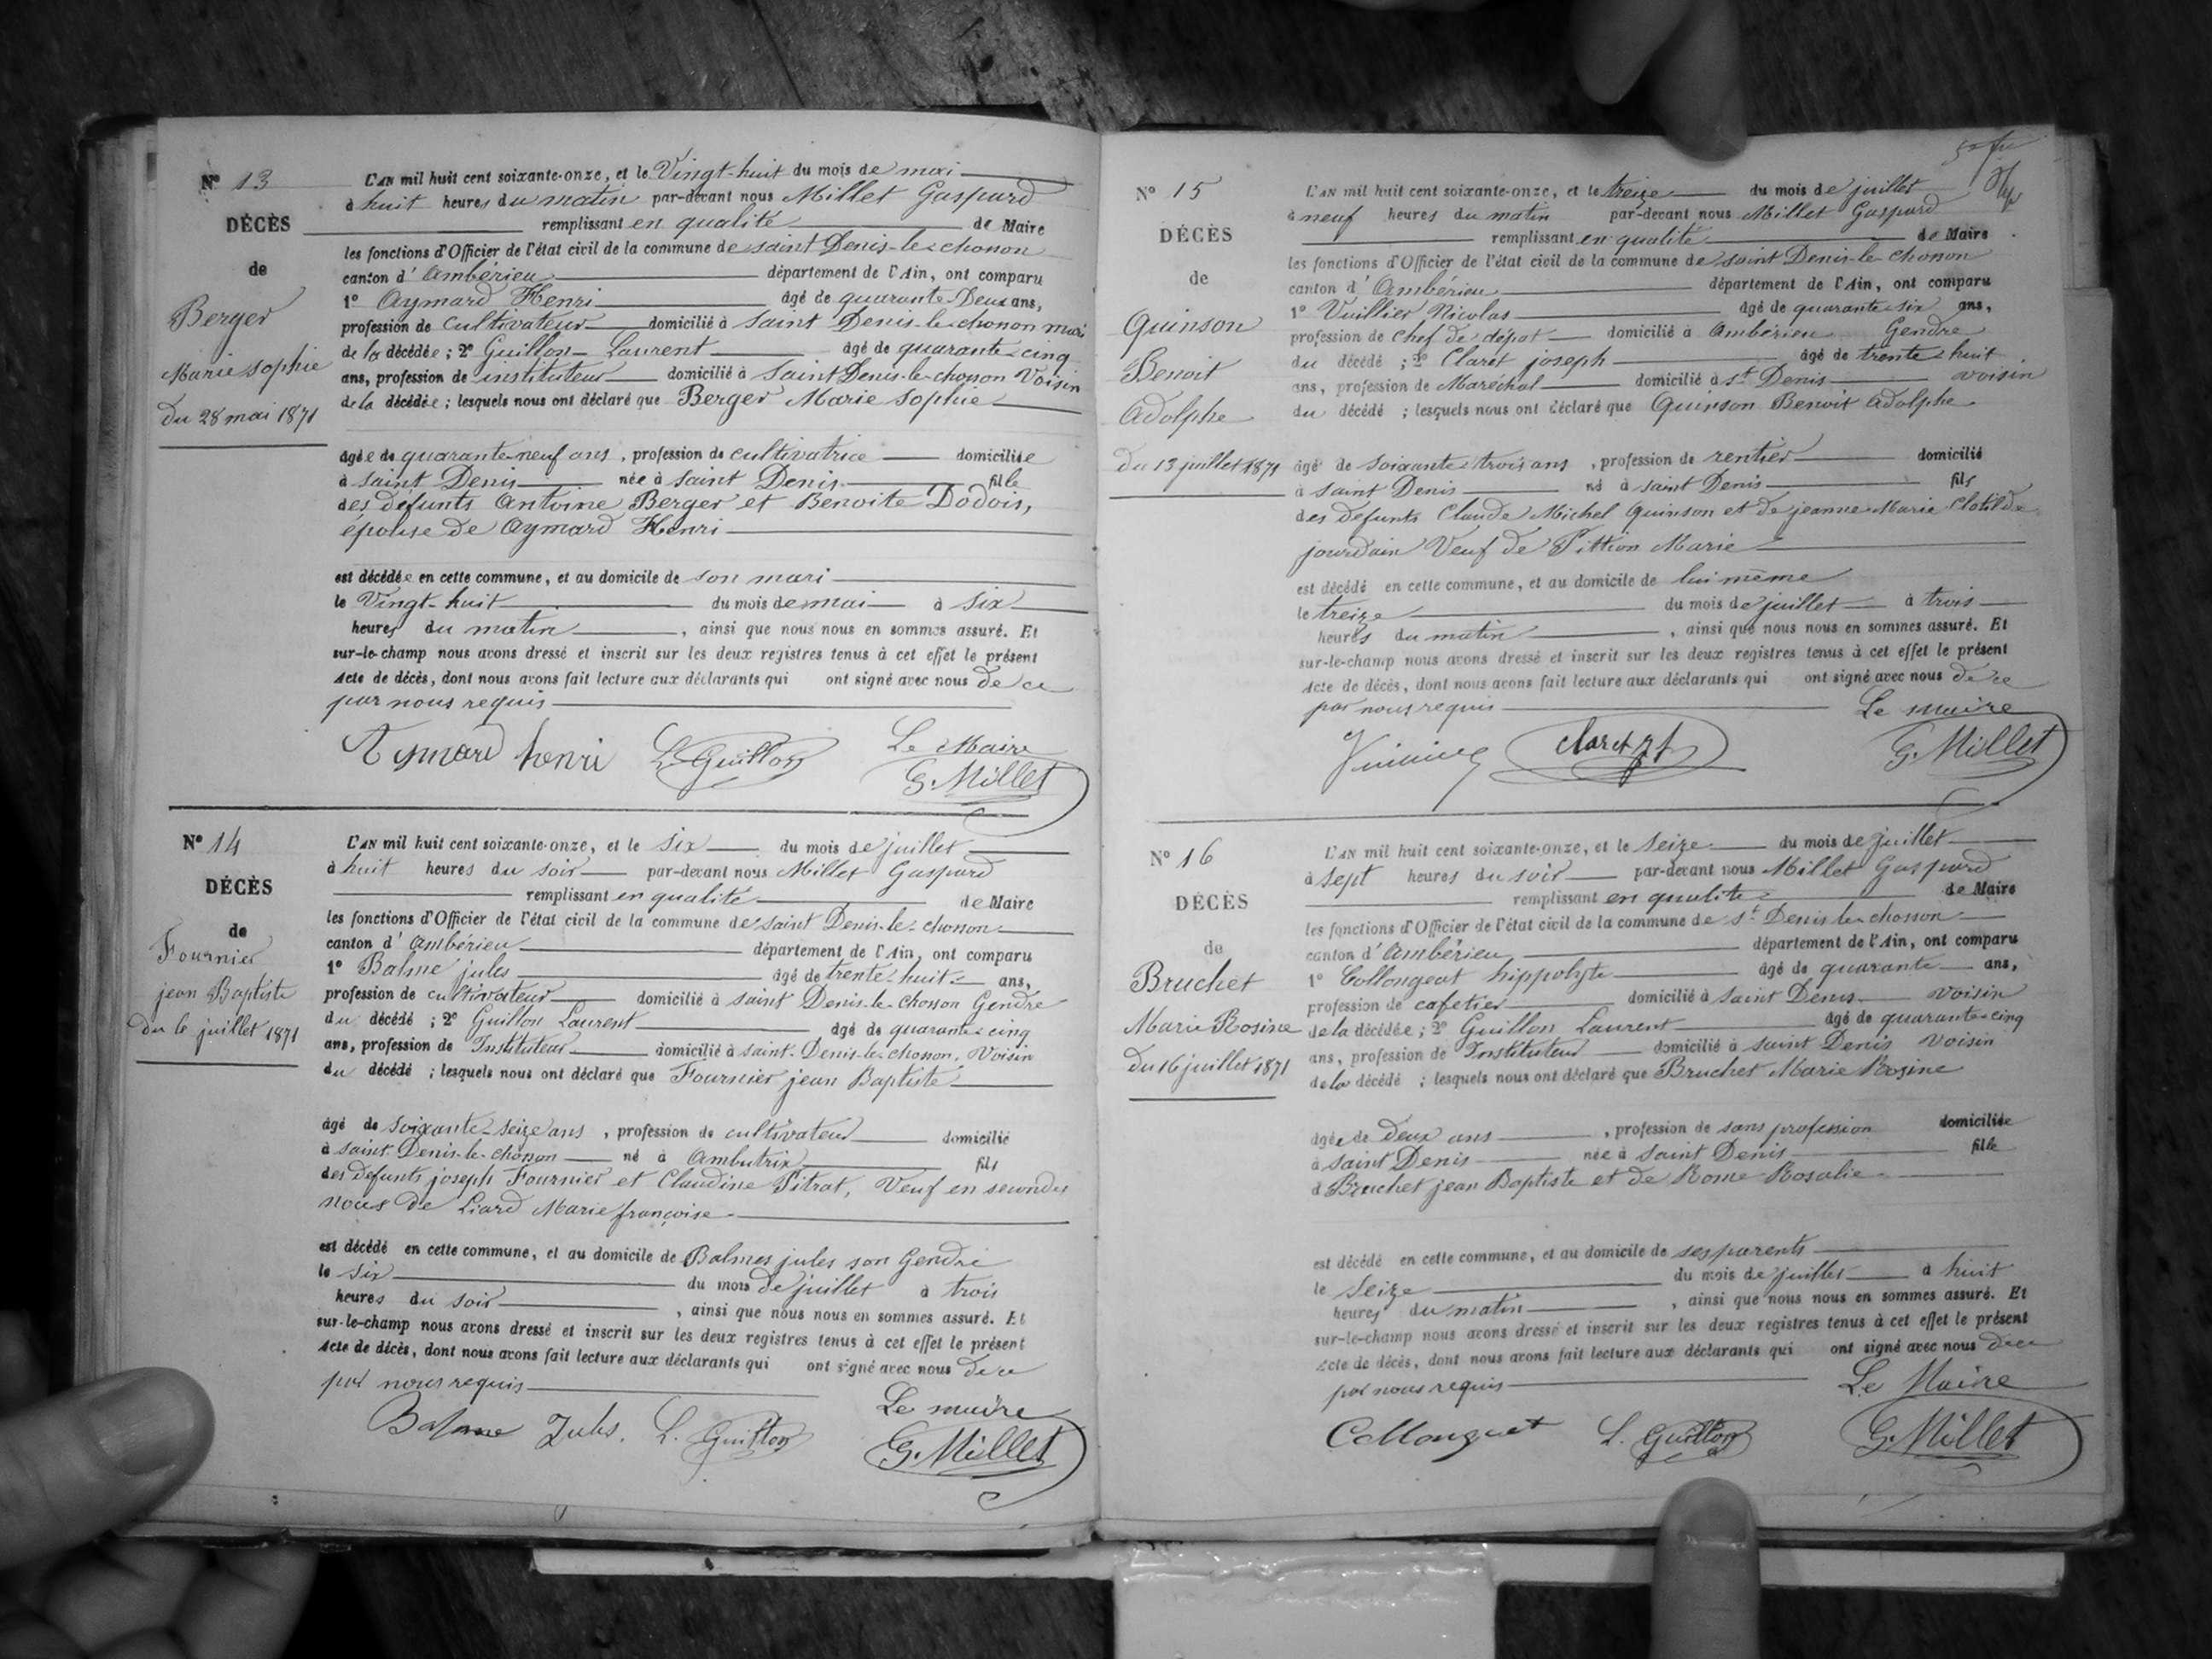 N° 13
DÉCÈS
de
Berger
Marie sophie
du 28 mai 1871
L'AN mil huit cent soixante-onze, et le Vingt-huit du mois de mai
à huit heures du matin par-devant nous Millet Gaspard
remplissant en qualité de Maire
les fonctions d'Officier de l'état civil de la commune de saint Denis-le-choson
canton d'Ambérieu département de l'Ain, ont comparu
1° Aymard Henri âgé de quarante-Deux ans,
profession de cultivateur domicilié à saint Denis-le-choson mari
de la décédée ; 2° Guillon Laurent âgé de quarante-cinq
ans, profession de instituteur domicilié à saint Denis-le-choson Voisin
de la décédée ; lesquels nous ont déclaré que Berger Marie sophie
âgée de quarante-neuf ans, profession de cultivatrice domiciliée
à saint Denis née à saint Denis fille
des défunts Antoine Berger et Benoite Dodois,
épouse de Aymard Henri
est décédée en cette commune, et au domicile de son mari
le Vingt-huit du mois de mai à six
heures du matin, ainsi que nous nous en sommes assuré. Et
sur-le-champ nous avons dressé et inscrit sur les deux registres tenus à cet effet le présent
Acte de décès, dont nous avons fait lecture aux déclarants qui ont signé avec nous de ce
par nous requis
Aymard henri L. Guillon Le Maire
G. Millet
N° 14
DÉCÈS
de
Fournier
jean Baptiste
du 6 juillet 1871
L'AN mil huit cent soixante-onze, et le six du mois de juillet
à huit heures du soir par-devant nous Millet Gaspard
remplissant en qualité de Maire
les fonctions d'Officier de l'état civil de la commune de saint Denis-le-choson
canton d'Ambérieu département de l'Ain, ont comparu
1° Balme jules âgé de trente-huit ans,
profession de cultivateur domicilié à saint Denis-le-choson Gendre
du décédé ; 2° Guillon Laurent âgé de quarante-cinq
ans, profession de Instituteur domicilié à saint-Denis-le-choson, Voisin
du décédé ; lesquels nous ont déclaré que Fournier jean Baptiste
âgé de soixante-seize ans, profession de cultivateur domicilié
à saint-Denis-le-choson né à Ambutrix fils
des défunts joseph Fournier et Claudine Pitrat, Veuf en secondes
noces de Liard Marie françoise
est décédé en cette commune, et au domicile de Balmes jules son Gendre
le six du mois de juillet à trois
heures du soir, ainsi que nous nous en sommes assuré. Et
sur-le-champ nous avons dressé et inscrit sur les deux registres tenus à cet effet le présent
Acte de décès, dont nous avons fait lecture aux déclarants qui ont signé avec nous de ce
par nous requis
Balme Jules. L. Guillon Le maire
G. Millet
N° 15
DÉCÈS
de
Quinson
Benoit
Adolphe
du 13 juillet 1871
L'AN mil huit cent soixante-onze, et le treize du mois de juillet
à neuf heures du matin par-devant nous Millet Gaspard
remplissant en qualité de Maire
les fonctions d'Officier de l'état civil de la commune de saint Denis-le-choson
canton d'Ambérieu département de l'Ain, ont comparu
1° Vuillier Nicolas âgé de quarante-six ans,
profession de chef de dépot domicilié à Ambérieu Gendre
du décédé ; 2° Claret joseph âgé de trente-huit
ans, profession de Maréchal domicilié à st Denis voisin
du décédé ; lesquels nous ont déclaré que Quinson Benoit Adolphe
âgé de soixante-trois ans, profession de rentier domicilié
à saint Denis né à saint Denis fils
des défunts Claude Michel Quinson et de jeanne Marie Clotilde
jourdain Veuf de Pittion Marie
est décédé en cette commune, et au domicile de lui même
le treize du mois de juillet à trois
heures du matin, ainsi que nous nous en sommes assuré. Et
sur-le-champ nous avons dressé et inscrit sur les deux registres tenus à cet effet le présent
Acte de décès, dont nous avons fait lecture aux déclarants qui ont signé avec nous de ce
par nous requis Le maire
Claret G. Millet
N° 16
DÉCÈS
de
Bruchet
Marie Rosine
du 16 juillet 1871
L'AN mil huit cent soixante-onze, et le seize du mois de juillet
à sept heures du soir par-devant nous Millet Gaspard
remplissant en qualité de Maire
les fonctions d'Officier de l'état civil de la commune de st Denis le chosson
canton d'Ambérieu département de l'Ain, ont comparu
1° Collongeat hippolyte âgé de quarante ans,
profession de cafetier domicilié à saint Denis voisin
de la décédée ; 2° Guillon Laurent âgé de quarante-cinq
ans, profession de Instituteur domicilié à saint Denis Voisin
de la décédé ; lesquels nous ont déclaré que Bruchet Marie Rosine
âgée de Deux ans, profession de sans profession domiciliée
à saint Denis née à saint Denis fille
d Bruchet jean Baptiste et de Rome Rosalie
est décédé en cette commune, et au domicile de ses parents
le seize du mois de juillet à huit
heures du matin, ainsi que nous nous en sommes assuré. Et
sur-le-champ nous avons dressé et inscrit sur les deux registres tenus à cet effet le présent
Acte de décès, dont nous avons fait lecture aux déclarants qui ont signé avec nous de ce
par nous requis Le Maire
Collonguet L. Guillon G. Millet